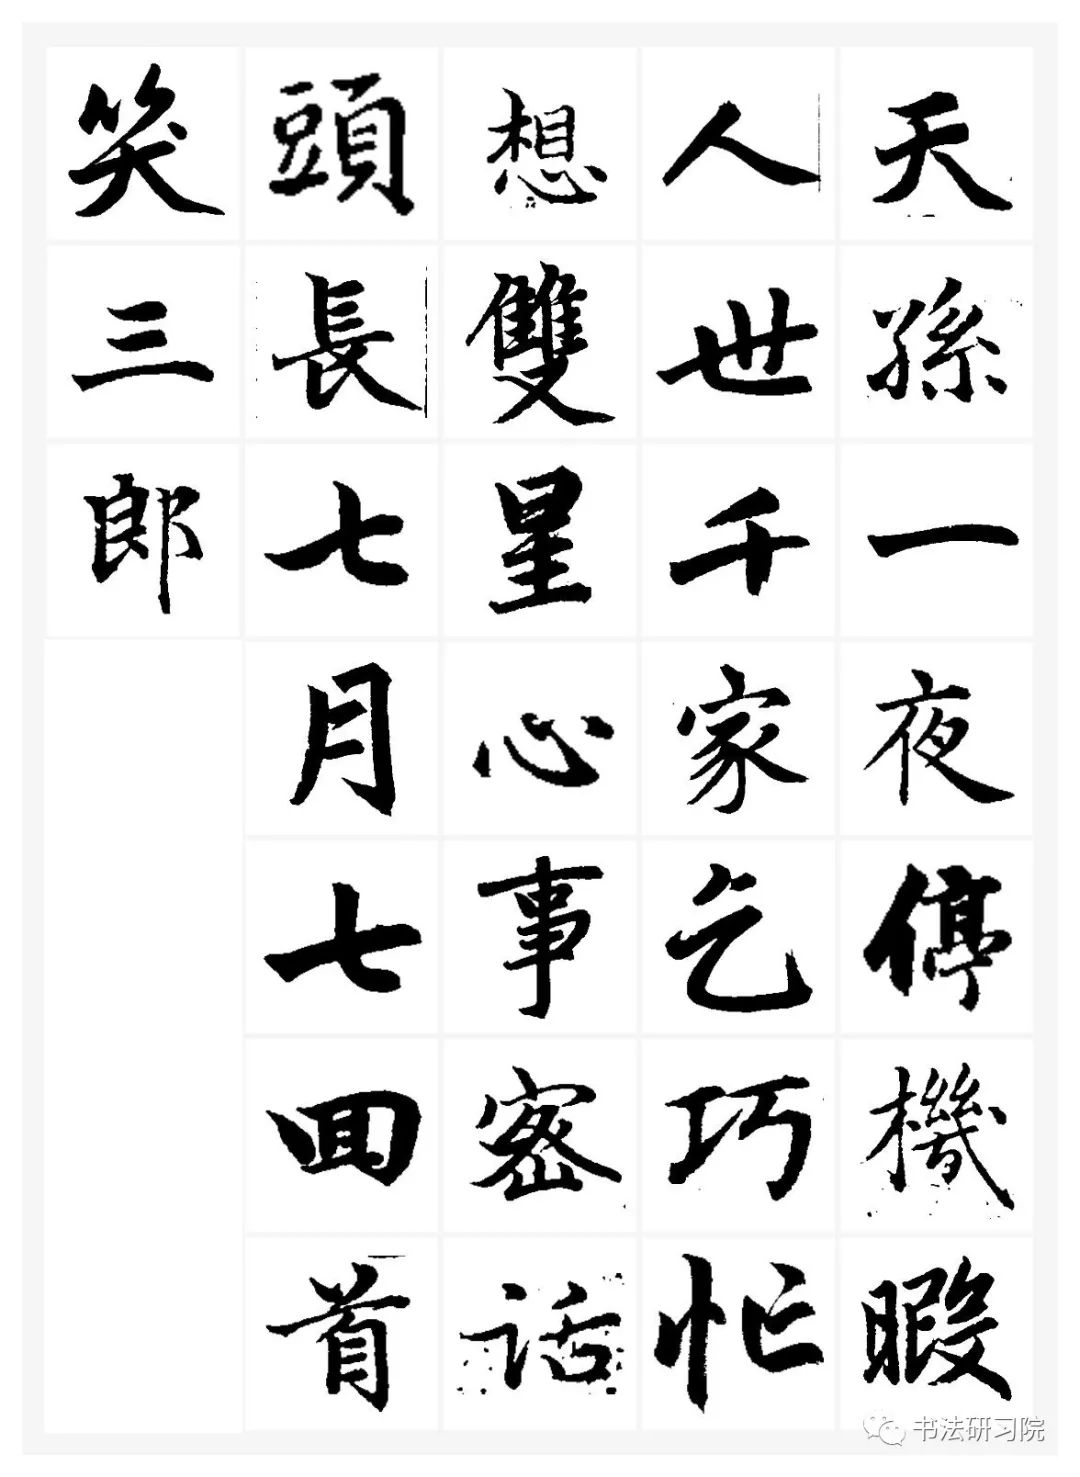 天孫一夜停機暇
人世千家乞巧忙
想雙星心事密話
頭長七月七回首
笑三郎
书法研习院